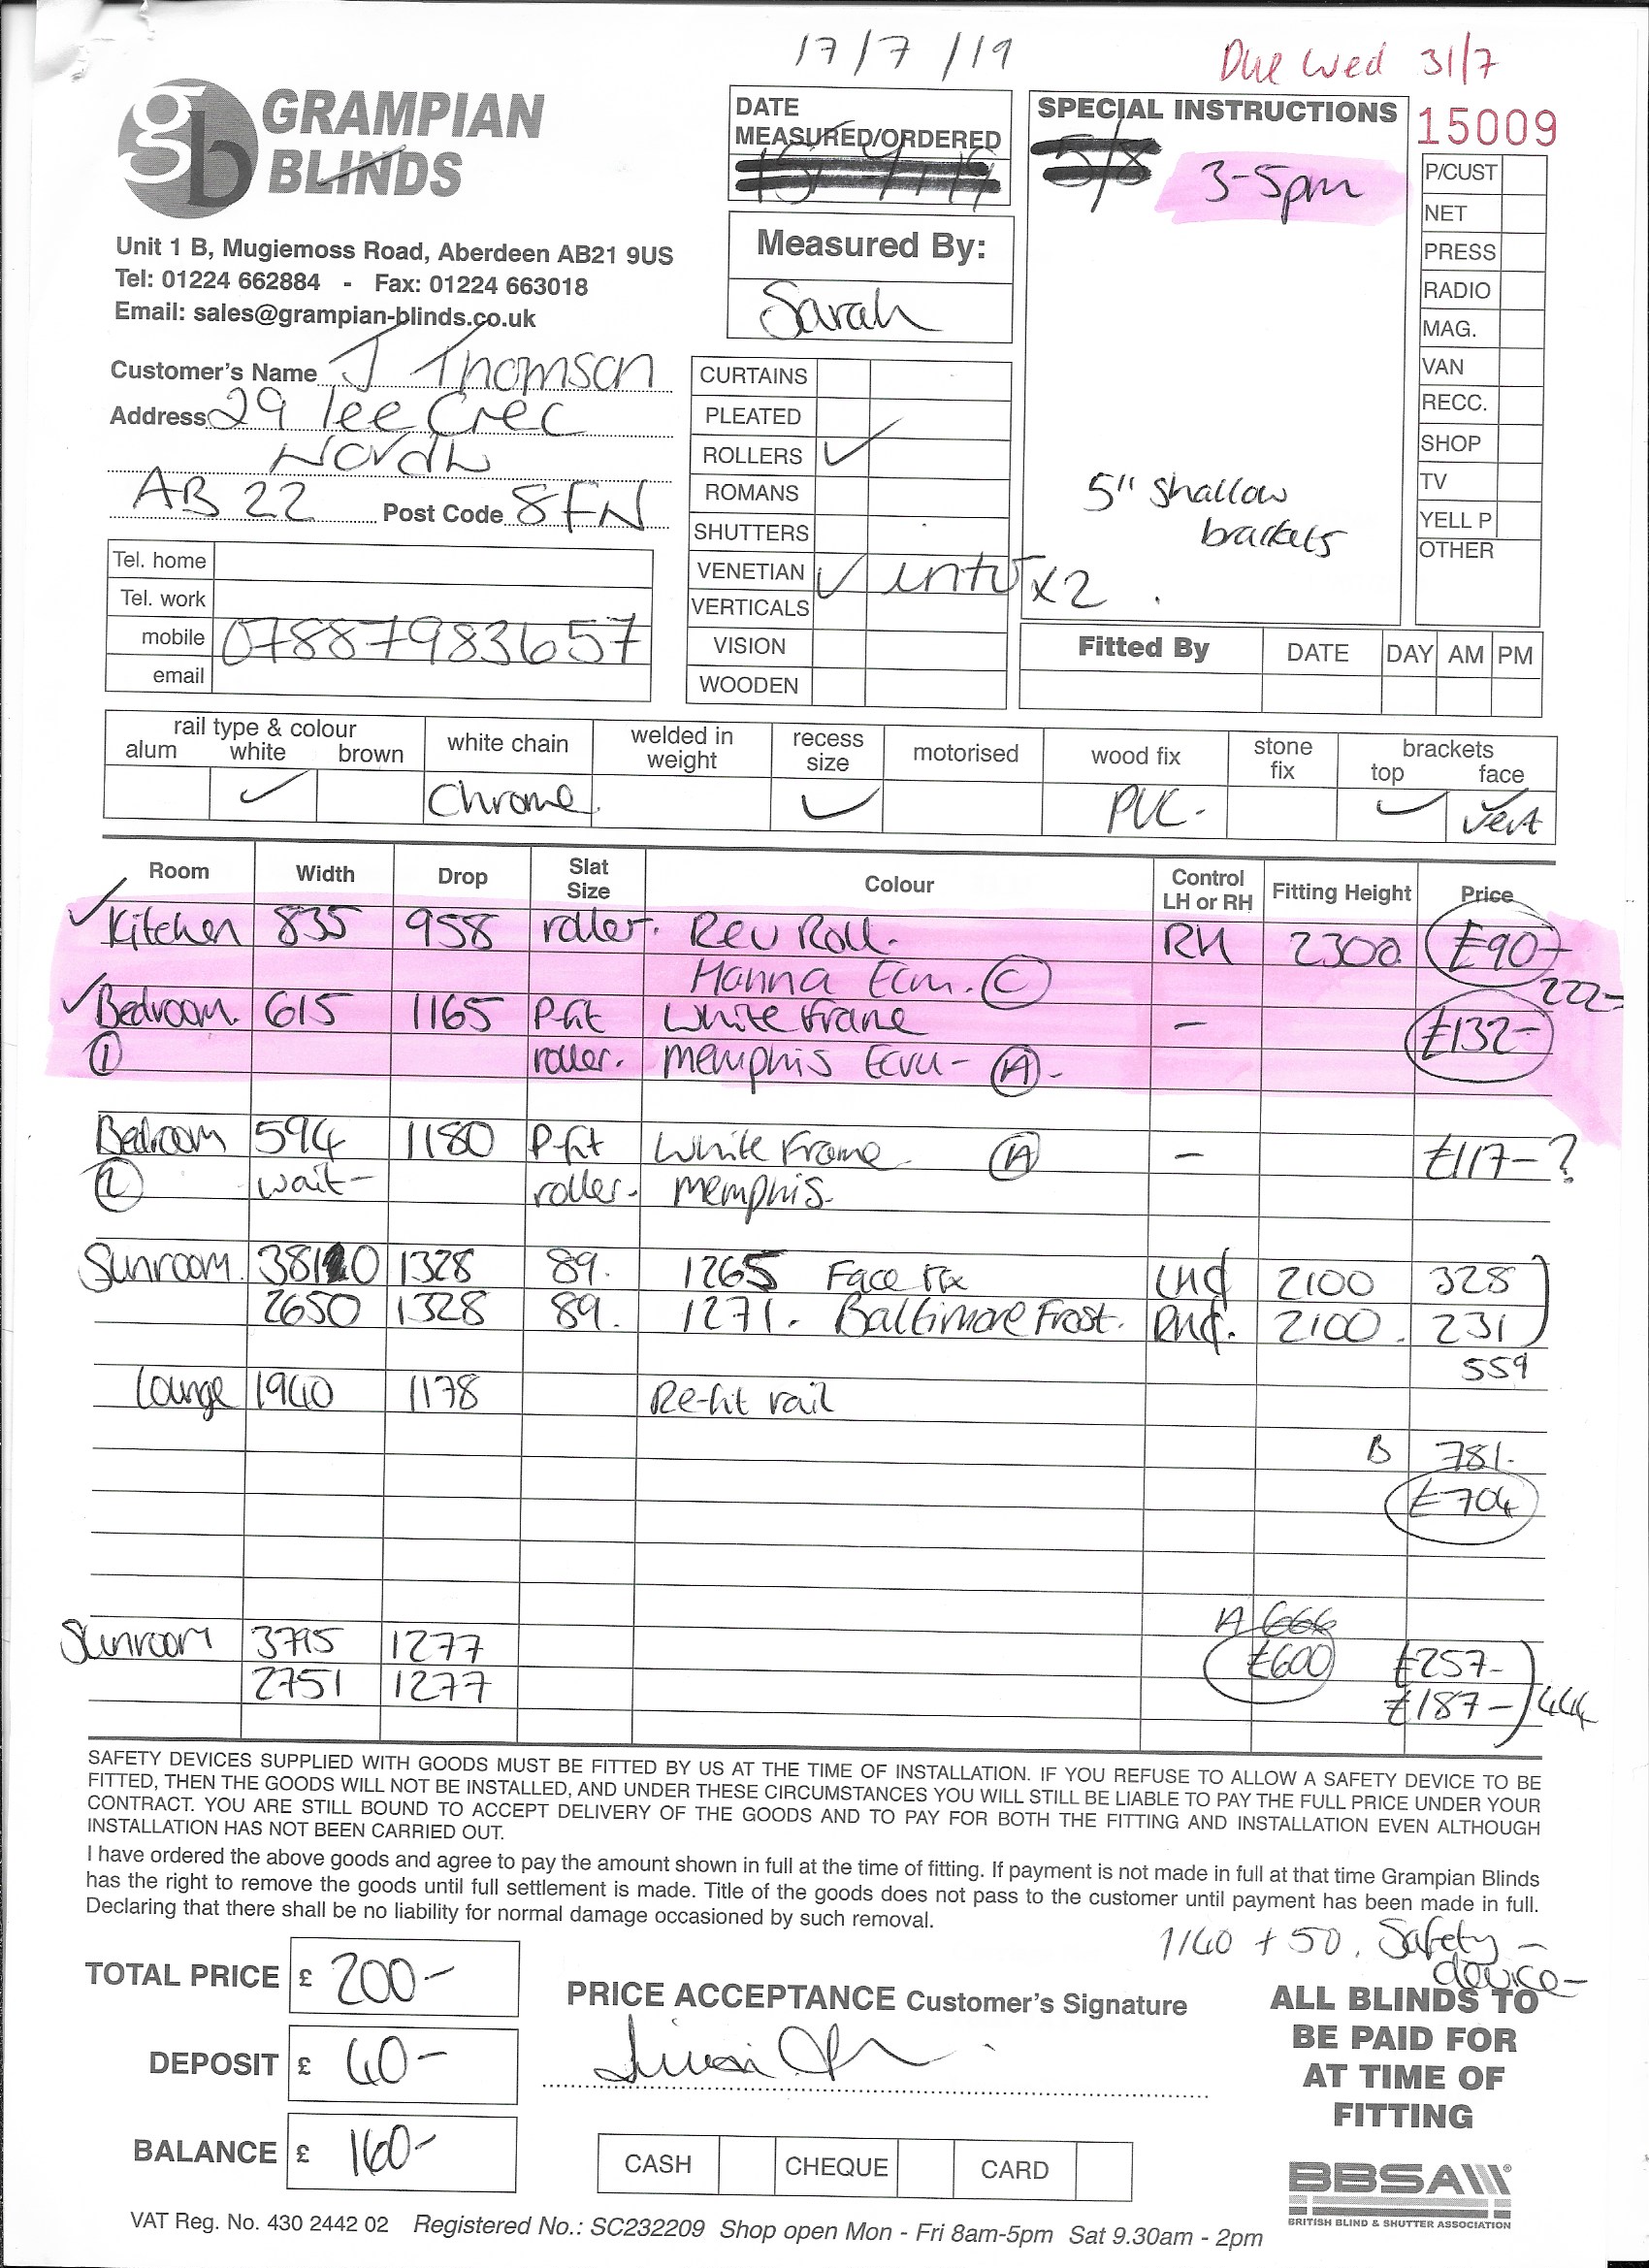 17/7/19
Due Wed 31/7
gb GRAMPIAN
BLINDS
DATE
MEASURED/ORDERED
SPECIAL INSTRUCTIONS
15009
5/8 3-5pm
Unit 1 B, Mugiemoss Road, Aberdeen AB21 9US
Tel: 01224 662884 - Fax: 01224 663018
Email: sales@grampian-blinds.co.uk
Measured By:
Sarah
Customer's Name J Thomson
Address 29 Tee Crec
North
AB22 Post Code 8FN
Tel. home
Tel. work
mobile 07887983657
email
CURTAINS
PLEATED
ROLLERS ✓
ROMANS
SHUTTERS
VENETIAN ✓ intu x2
VERTICALS
VISION
WOODEN
5" shallow
brackets
P/CUST
NET
PRESS
RADIO
MAG.
VAN
RECC.
SHOP
TV
YELL P
OTHER
Fitted By DATE DAY AM PM
rail type & colour white chain welded in weight recess size motorised wood fix stone fix brackets
alum white brown top face
✓ Chrome. ✓ PVC- ✓ ✓ vert
Room Width Drop Slat Size Colour Control LH or RH Fitting Height Price
✓ Kitchen 835 958 roller. Rev Roll. RH 2300 £90-
Hanna Ecru. C
222-
✓ Bedroom. 615 1165 P-fit White Frame - £132-
1 roller. Memphis Ecru- A-
Bedroom 594 1180 P-fit White Frame A - £117-?
2 wait- roller. Memphis.
Sunroom. 3810 1328 89. 1265 Face fix LHC 2100 328
2650 1328 89. 1271. Baltimore Frost. RHC. 2100. 231
559
Lounge 1940 1178 Re-fit rail
B 781-
£704
A 666
Sunroom 3795 1277 £600 £257-
2751 1277 £187- 444
SAFETY DEVICES SUPPLIED WITH GOODS MUST BE FITTED BY US AT THE TIME OF INSTALLATION. IF YOU REFUSE TO ALLOW A SAFETY DEVICE TO BE
FITTED, THEN THE GOODS WILL NOT BE INSTALLED, AND UNDER THESE CIRCUMSTANCES YOU WILL STILL BE LIABLE TO PAY THE FULL PRICE UNDER YOUR
CONTRACT. YOU ARE STILL BOUND TO ACCEPT DELIVERY OF THE GOODS AND TO PAY FOR BOTH THE FITTING AND INSTALLATION EVEN ALTHOUGH
INSTALLATION HAS NOT BEEN CARRIED OUT.
I have ordered the above goods and agree to pay the amount shown in full at the time of fitting. If payment is not made in full at that time Grampian Blinds
has the right to remove the goods until full settlement is made. Title of the goods does not pass to the customer until payment has been made in full.
Declaring that there shall be no liability for normal damage occasioned by such removal.
1140 + 50. Safety -
device-
TOTAL PRICE £ 200-
DEPOSIT £ 40-
BALANCE £ 160-
PRICE ACCEPTANCE Customer's Signature
CASH CHEQUE CARD
ALL BLINDS TO
BE PAID FOR
AT TIME OF
FITTING
BBSA
BRITISH BLIND & SHUTTER ASSOCIATION
VAT Reg. No. 430 2442 02 Registered No.: SC232209 Shop open Mon - Fri 8am-5pm Sat 9.30am - 2pm